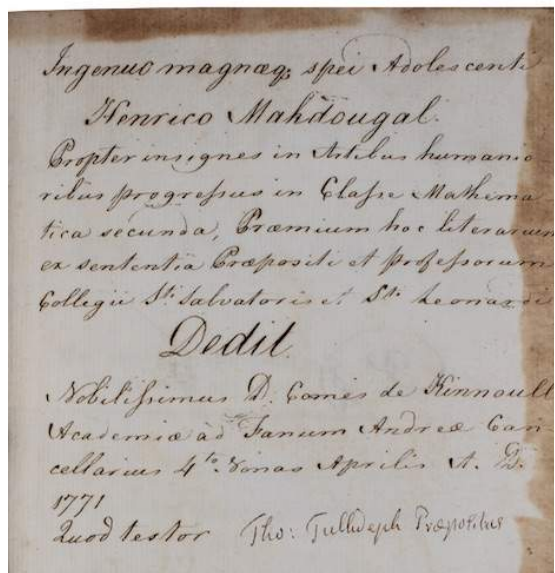 Ingenuo magnæq; spei Adolescenti
Henrico Mahdougal.
Propter insignes in Artibus humanio
ribus progressus in Classe Mathema
tica secunda, Præmium hoc literarium
ex sententia Præpositi et professorum
Collegii Sti. Salvatoris et Sti. Leonardi
Dedit.
Nobilissimus D. Comes de Kinnoull
Academiæ ad Fanum Andreæ Can-
cellarius 4to. Nonas Aprilis A. D.
1771
Quod testor Tho: Tullideph Præpositus